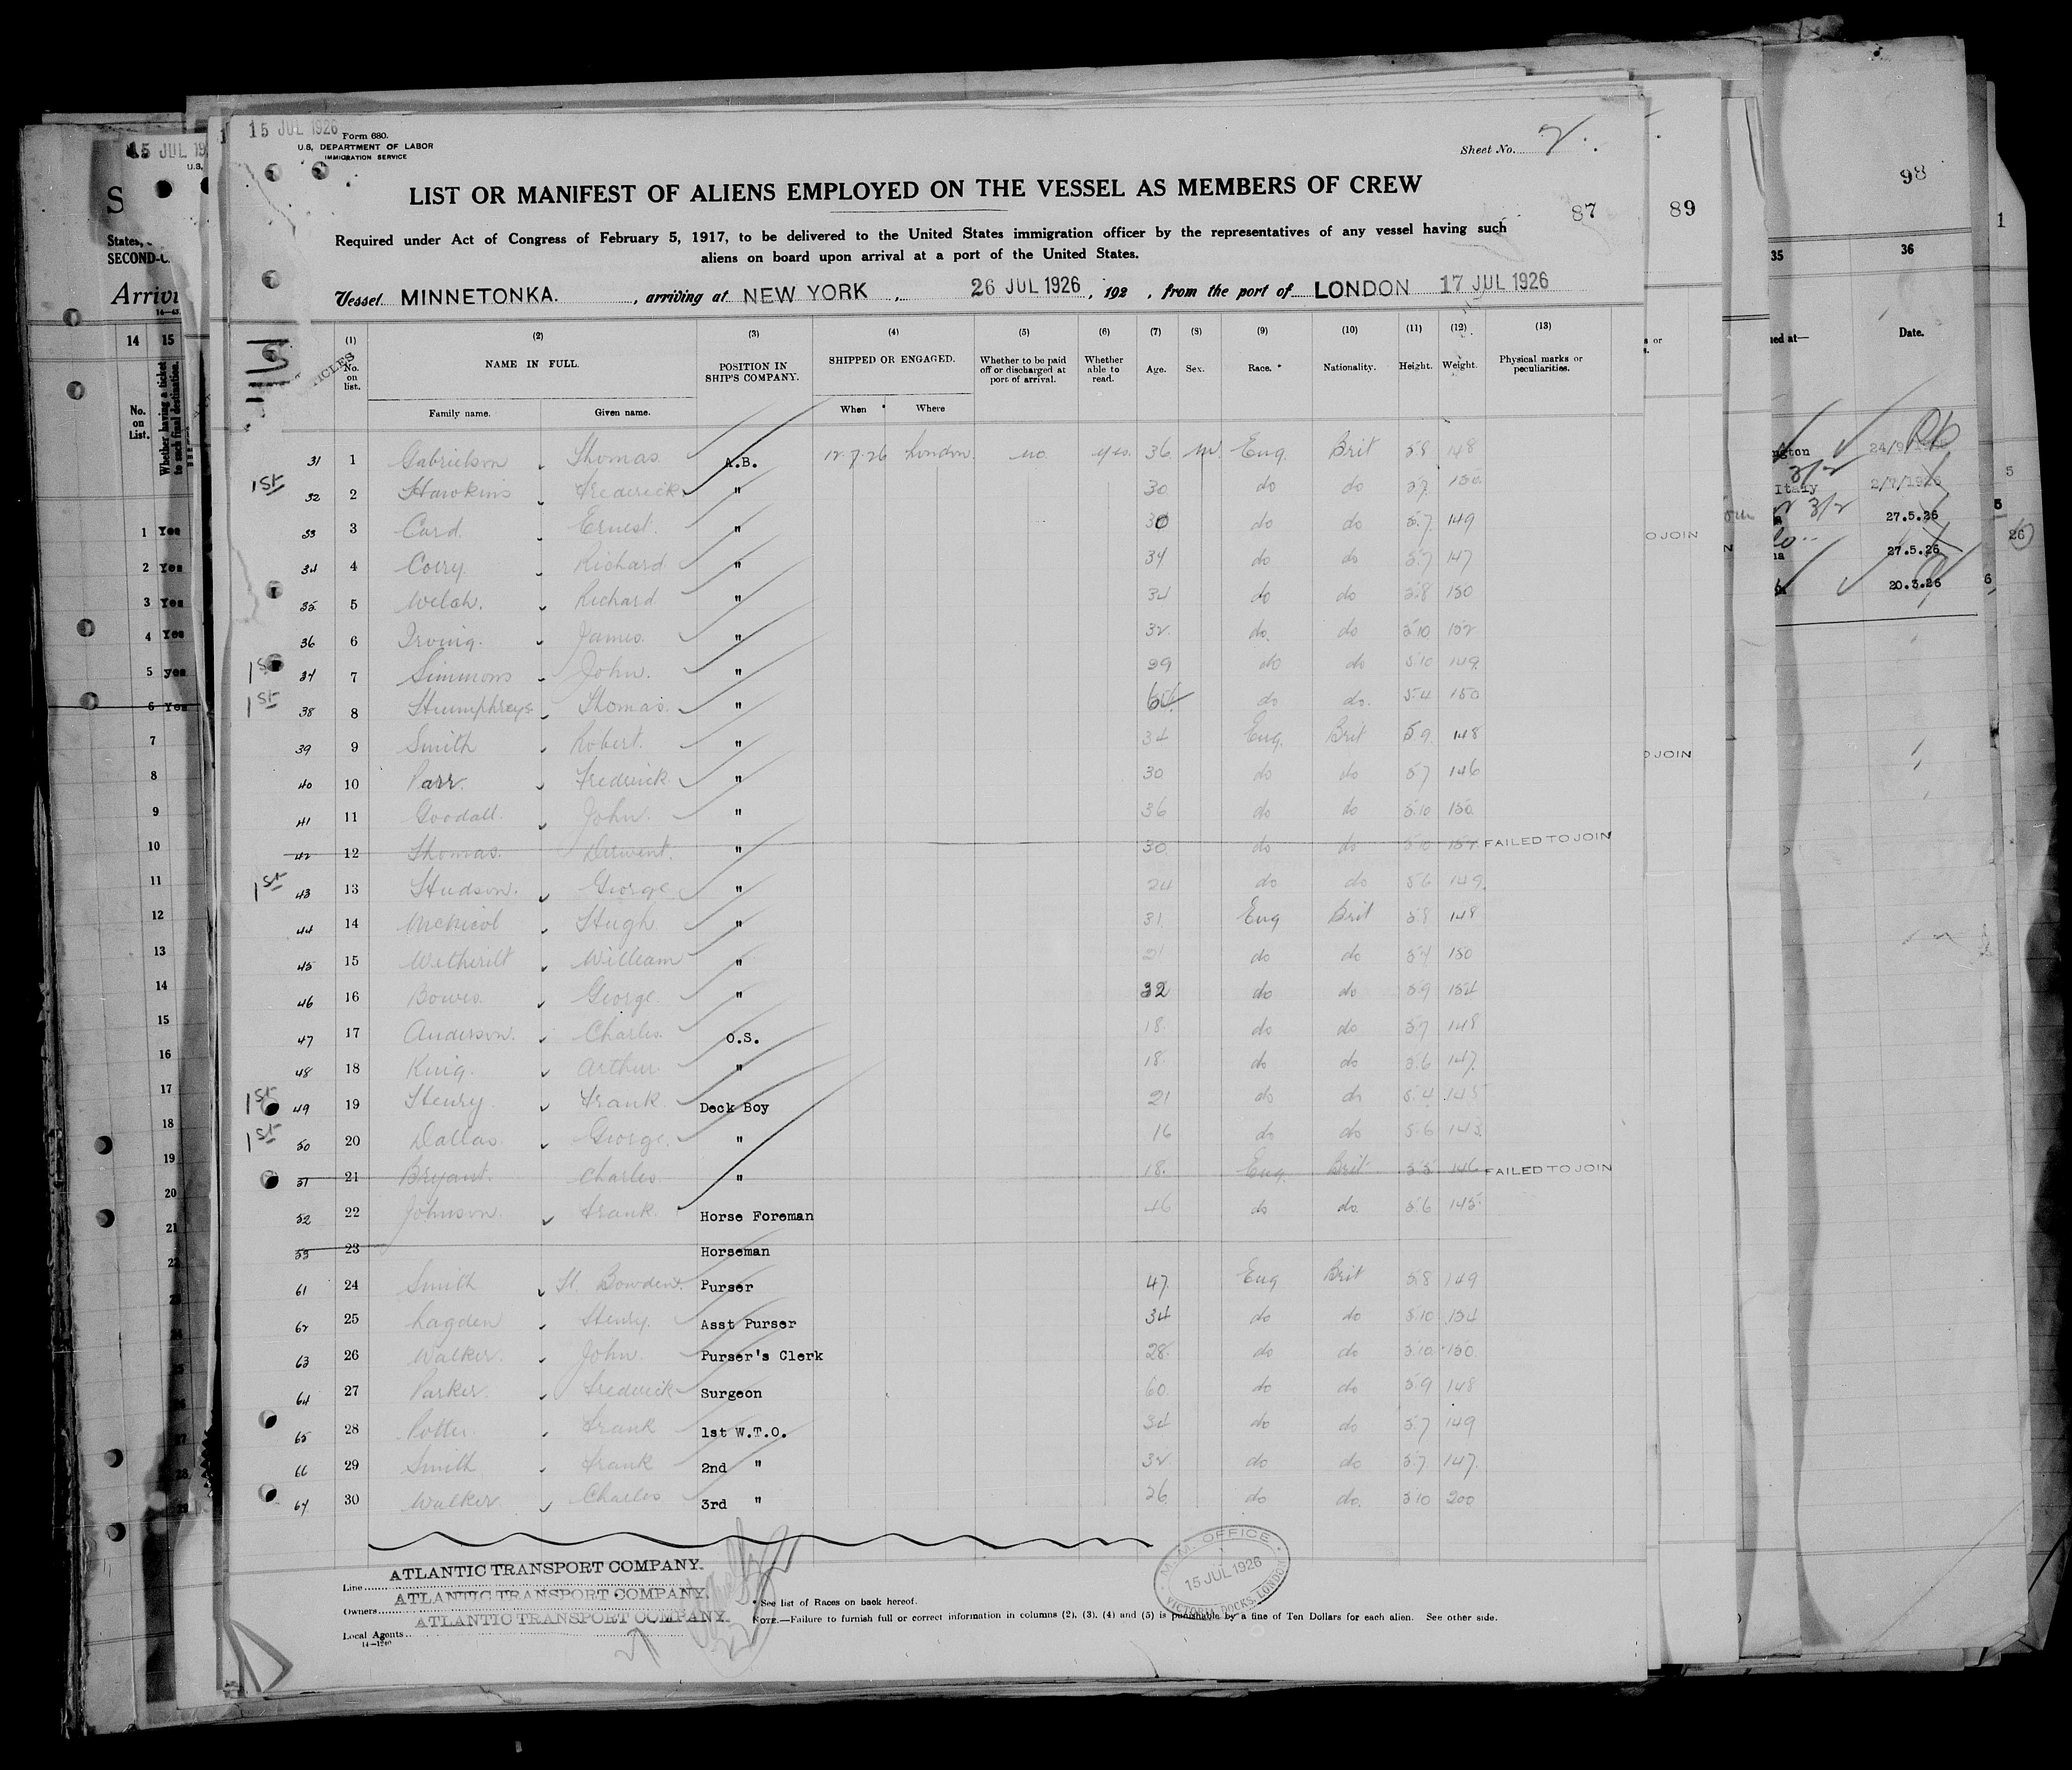 15 JUL 1926
Form 680.
U.S. DEPARTMENT OF LABOR
IMMIGRATION SERVICE
Sheet No. 2.
LIST OR MANIFEST OF ALIENS EMPLOYED ON THE VESSEL AS MEMBERS OF CREW
87
89
98
Required under Act of Congress of February 5, 1917, to be delivered to the United States immigration officer by the representatives of any vessel having such
aliens on board upon arrival at a port of the United States.
Vessel MINNETONKA. , arriving at NEW YORK , 26 JUL 1926 , 192 , from the port of LONDON 17 JUL 1926
(1) (2) (3) (4) (5) (6) (7) (8) (9) (10) (11) (12) (13)
No. on list. NAME IN FULL. POSITION IN SHIP'S COMPANY. SHIPPED OR ENGAGED. Whether to be paid off or discharged at port of arrival. Whether able to read. Age. Sex. Race. * Nationality. Height. Weight. Physical marks or peculiarities.
Family name. Given name. When Where
31 1 Gabrielson Thomas A.B. 12.7.26 London. no yes. 36 m. Eng. Brit 5.8 148
1st 32 2 Hawkins Frederick " 30 do do 5.7. 150
33 3 Card. Ernest. " 30 do do 5.7. 149
34 4 Corry. Richard " 34 do do 5.7 147
35 5 Welch. Richard " 34 do do 5.8 150
36 6 Irving. James. " 32 do. do 5.10 152
1st 37 7 Simmons John. " 29 do do 5.10 149
1st 38 8 Humphreys Thomas. " do do. 5.4 150
39 9 Smith Robert. " 34 Eng. Brit 5.9. 148
40 10 Parr. Frederick " 30 do do 5.7 146
41 11 Goodall. John. " 36 do do 5.10 150
42 12 Thomas. Derwent. " 30 do do 5.10 152 FAILED TO JOIN
1st 43 13 Hudson. George " 24 do do 5.6 149.
44 14 McNicol Hugh. " 31 Eng Brit 5.8 148
45 15 Witherilt William " 21 do do 5.7 150
46 16 Bowes. George. " 32 do do 5.9 154
47 17 Anderson. Charles. O.S. 18. do do 5.7 148
48 18 King. Arthur " 18. do do 5.6 147.
1st 49 19 Henry. Frank Deck Boy 21 do do 5.4 145
1st 50 20 Dallas. George. " 16 do do 5.6 143.
51 21 Bryant. Charles " 18. Eng Brit 5.5 146 FAILED TO JOIN
52 22 Johnson. Frank. Horse Foreman 46 do do. 5.6 145
53 23 Horseman
61 24 Smith H. Bowden. Purser 47. Eng Brit 5.8 149
62 25 Lagden Henry. Asst Purser 34 do do 5.10 154
63 26 Walker. John. Purser's Clerk 28. do do 5.10 150
64 27 Parker. Frederick Surgeon 60. do do 5.9 148
65 28 Potter Frank 1st W.T.O. 34 do do 5.7 149
66 29 Smith Frank 2nd " 32 do do 5.7. 147.
67 30 Walker Charles 3rd " 26 do do. 5.10 200
Line ATLANTIC TRANSPORT COMPANY.
Owners ATLANTIC TRANSPORT COMPANY.
Local Agents ATLANTIC TRANSPORT COMPANY.
14—1240
* See list of Races on back hereof.
NOTE.—Failure to furnish full or correct information in columns (2), (3), (4) and (5) is punishable by a fine of Ten Dollars for each alien. See other side.
M.M. OFFICE
15 JUL 1926
VICTORIA DOCKS, LONDON
15 JUL 19
States,
SECOND-C
14 15
No. on List.
Whether having a ticket to such final destination.
1 Yes
2 Yes
3 Yes
4 Yes
5 yes
6 Yes
7
8
9
10
11
12
13
14
15
16
17
18
19
20
21
22
O JOIN
O JOIN
35 36
Date.
27.5.26
27.5.26
20.3.26